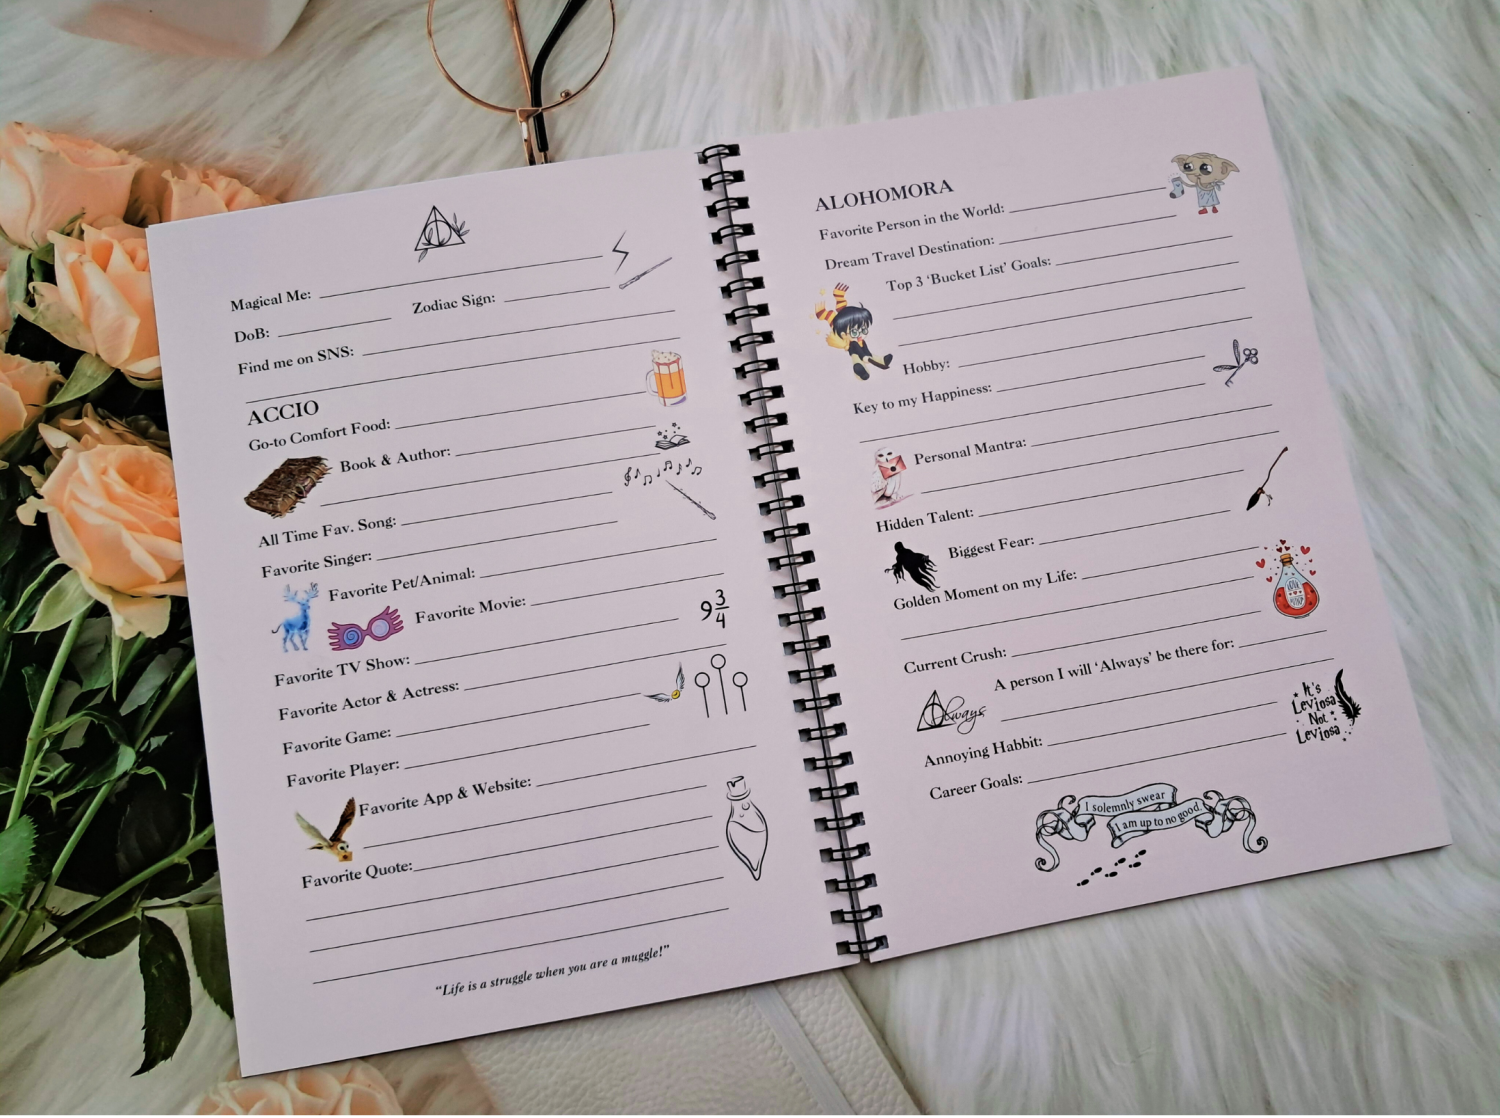 Magical Me:
DoB: Zodiac Sign:
Find me on SNS:
ACCIO
Go-to Comfort Food:
Book & Author:
All Time Fav. Song:
Favorite Singer:
Favorite Pet/Animal:
Favorite Movie:
9 3/4
Favorite TV Show:
Favorite Actor & Actress:
Favorite Game:
Favorite Player:
Favorite App & Website:
Favorite Quote:
“Life is a struggle when you are a muggle!”
ALOHOMORA
Favorite Person in the World:
Dream Travel Destination:
Top 3 ‘Bucket List’ Goals:
Hobby:
Key to my Happiness:
Personal Mantra:
Hidden Talent:
Biggest Fear:
Golden Moment on my Life:
Current Crush:
A person I will ‘Always’ be there for:
Always
It's
Leviosa
Not
Leviosa
Annoying Habbit:
Career Goals:
I solemnly swear
I am up to no good.